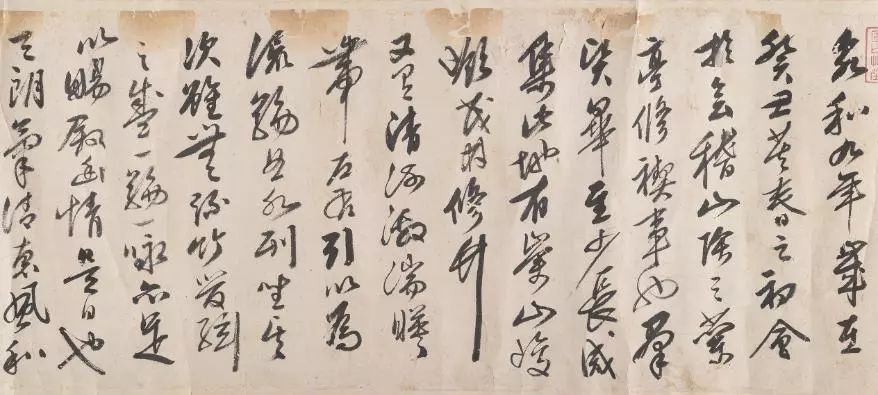 永和九年歲在
癸丑暮春之初會
於會稽山陰之蘭
亭修禊事也羣
賢畢至少長咸
集此地有崇山峻
嶺茂林修竹
又有清流激湍暎
帶左右引以為
流觴曲水列坐其
次雖無絲竹管絃
之盛一觴一詠亦足
以暢敘幽情是日也
天朗氣清惠風和